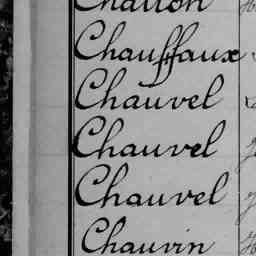 Chatton
Chauffaux
Chauvel
Chauvel
Chauvel
Chauvin